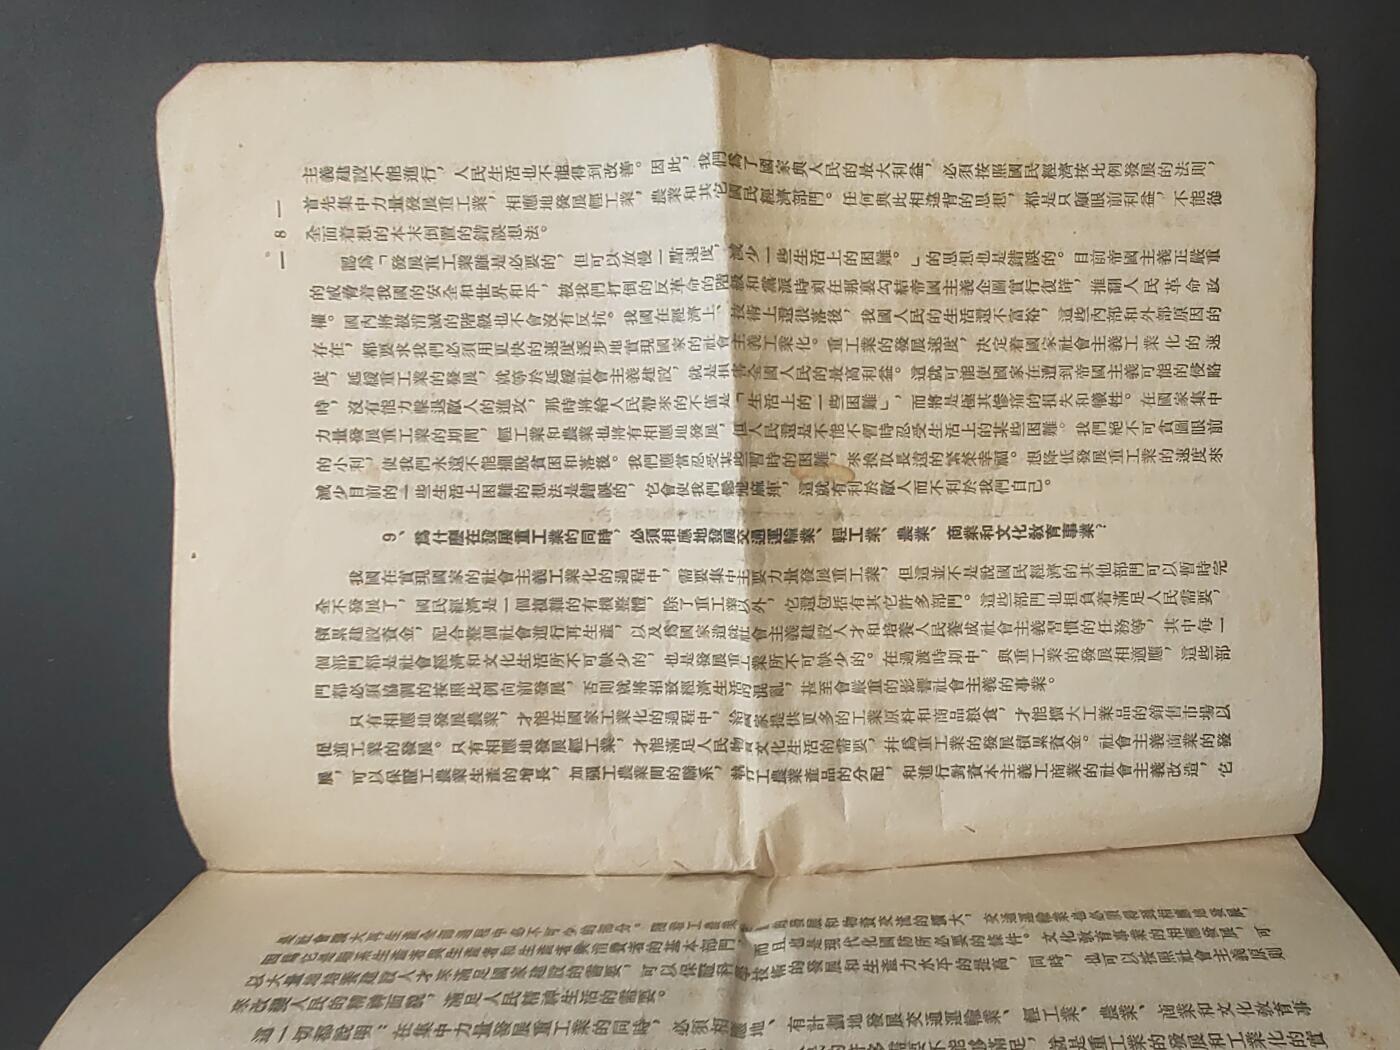 — 8 —
主義建設不能進行，人民生活也不能得到改善。因此，我們爲了國家與人民的最大利益，必須按照國民經濟按比例發展的法則，
首先集中力量發展重工業，相應地發展輕工業，農業和其它國民經濟部門。任何與此相違背的思想，都是只顧眼前利益，不能從
全面着想的本末倒置的錯誤想法。
認爲「發展重工業雖是必要的，但可以放慢一點速度，減少一些生活上的困難。」的思想也是錯誤的。目前帝國主義正嚴重
的威脅着我國的安全和世界和平，被我們打倒的反革命的階級和黨派時刻在那裏勾結帝國主義企圖實行復辟，推翻人民革命政
權。國內將被消滅的階級也不會沒有反抗。我國在經濟上、技術上還很落後，我國人民的生活還不富裕，這些內部和外部原因的
存在，都要求我們必須用更快的速度逐步地實現國家的社會主義工業化。重工業的發展速度，決定着國家社會主義工業化的速
度，延緩重工業的發展，就等於延緩社會主義建設，就是損害全國人民的最高利益。這就可能使國家在遭到帝國主義可能的侵略
時，沒有能力擊退敵人的進攻，那時將給人民帶來的不僅是「生活上的一些困難」，而將是極其慘痛的損失和犧牲。在國家集中
力量發展重工業的期間，輕工業和農業也將有相應地發展，但人民還是不能不暫時忍受生活上的某些困難。我們絕不可貪圖眼前
的小利，使我們永遠不能擺脫貧困和落後。我們應當忍受某些暫時的困難，來換取長遠的繁榮幸福。想降低發展重工業的速度來
減少目前的一些生活上困難的想法是錯誤的，它會使我們鬆弛麻痺，這就有利於敵人而不利於我們自己。
9、爲什麼在發展重工業的同時，必須相應地發展交通運輸業、輕工業、農業、商業和文化教育事業？
我國在實現國家的社會主義工業化的過程中，需要集中主要力量發展重工業，但這並不是說國民經濟的其他部門可以暫時完
全不發展了，國民經濟是一個複雜的有機整體，除了重工業以外，它還包括有其它許多部門。這些部門也担負着滿足人民需要，
積累建設資金，配合整個社會進行再生產，以及爲國家造就社會主義建設人才和培養人民養成社會主義習慣的任務等，其中每一
個部門都是社會經濟和文化生活所不可缺少的，也是發展重工業所不可缺少的。在過渡時期中，與重工業的發展相適應，這些部
門都必須協調的按照比例向前發展，否則就將招致經濟生活的混亂，甚至會嚴重的影響社會主義的事業。
只有相應地發展農業，才能在國家工業化的過程中，給國家提供更多的工業原料和商品粮食，才能擴大工業品的銷售市場以
促進工業的發展。只有相應地發展輕工業，才能滿足人民物質文化生活的需要，并爲重工業的發展積累資金。社會主義商業的發
展，可以保證工農業生產的增長，加强工農業間的聯系，執行工農業產品的分配，和進行對資本主義工商業的社會主義改造，它
是社會擴大再生產全部過程中必不可少的部分。隨着工農業 的發展和物資交流的擴大，交通運輸業也必須得到相應地發展，
因爲它是聯系生產者與生產者和生產者與消費者的基本部門，而且也是現代化國防所必要的條件。文化教育事業的相應發展，可
以大量地培養建設人才來滿足國家建設的需要，可以保證科學技術的發展和生產力水平的提高，同時，也可以按照社會主義原則
來改變人民的精神面貌，滿足人民精神生活的需要。
這一切都說明：在集中力量發展重工業的同時，必須相應地、有計劃地發展交通運輸業、輕工業、農業、商業和文化教育事
的許多需要不能够滿足，就是重工業的發展和工業化的實